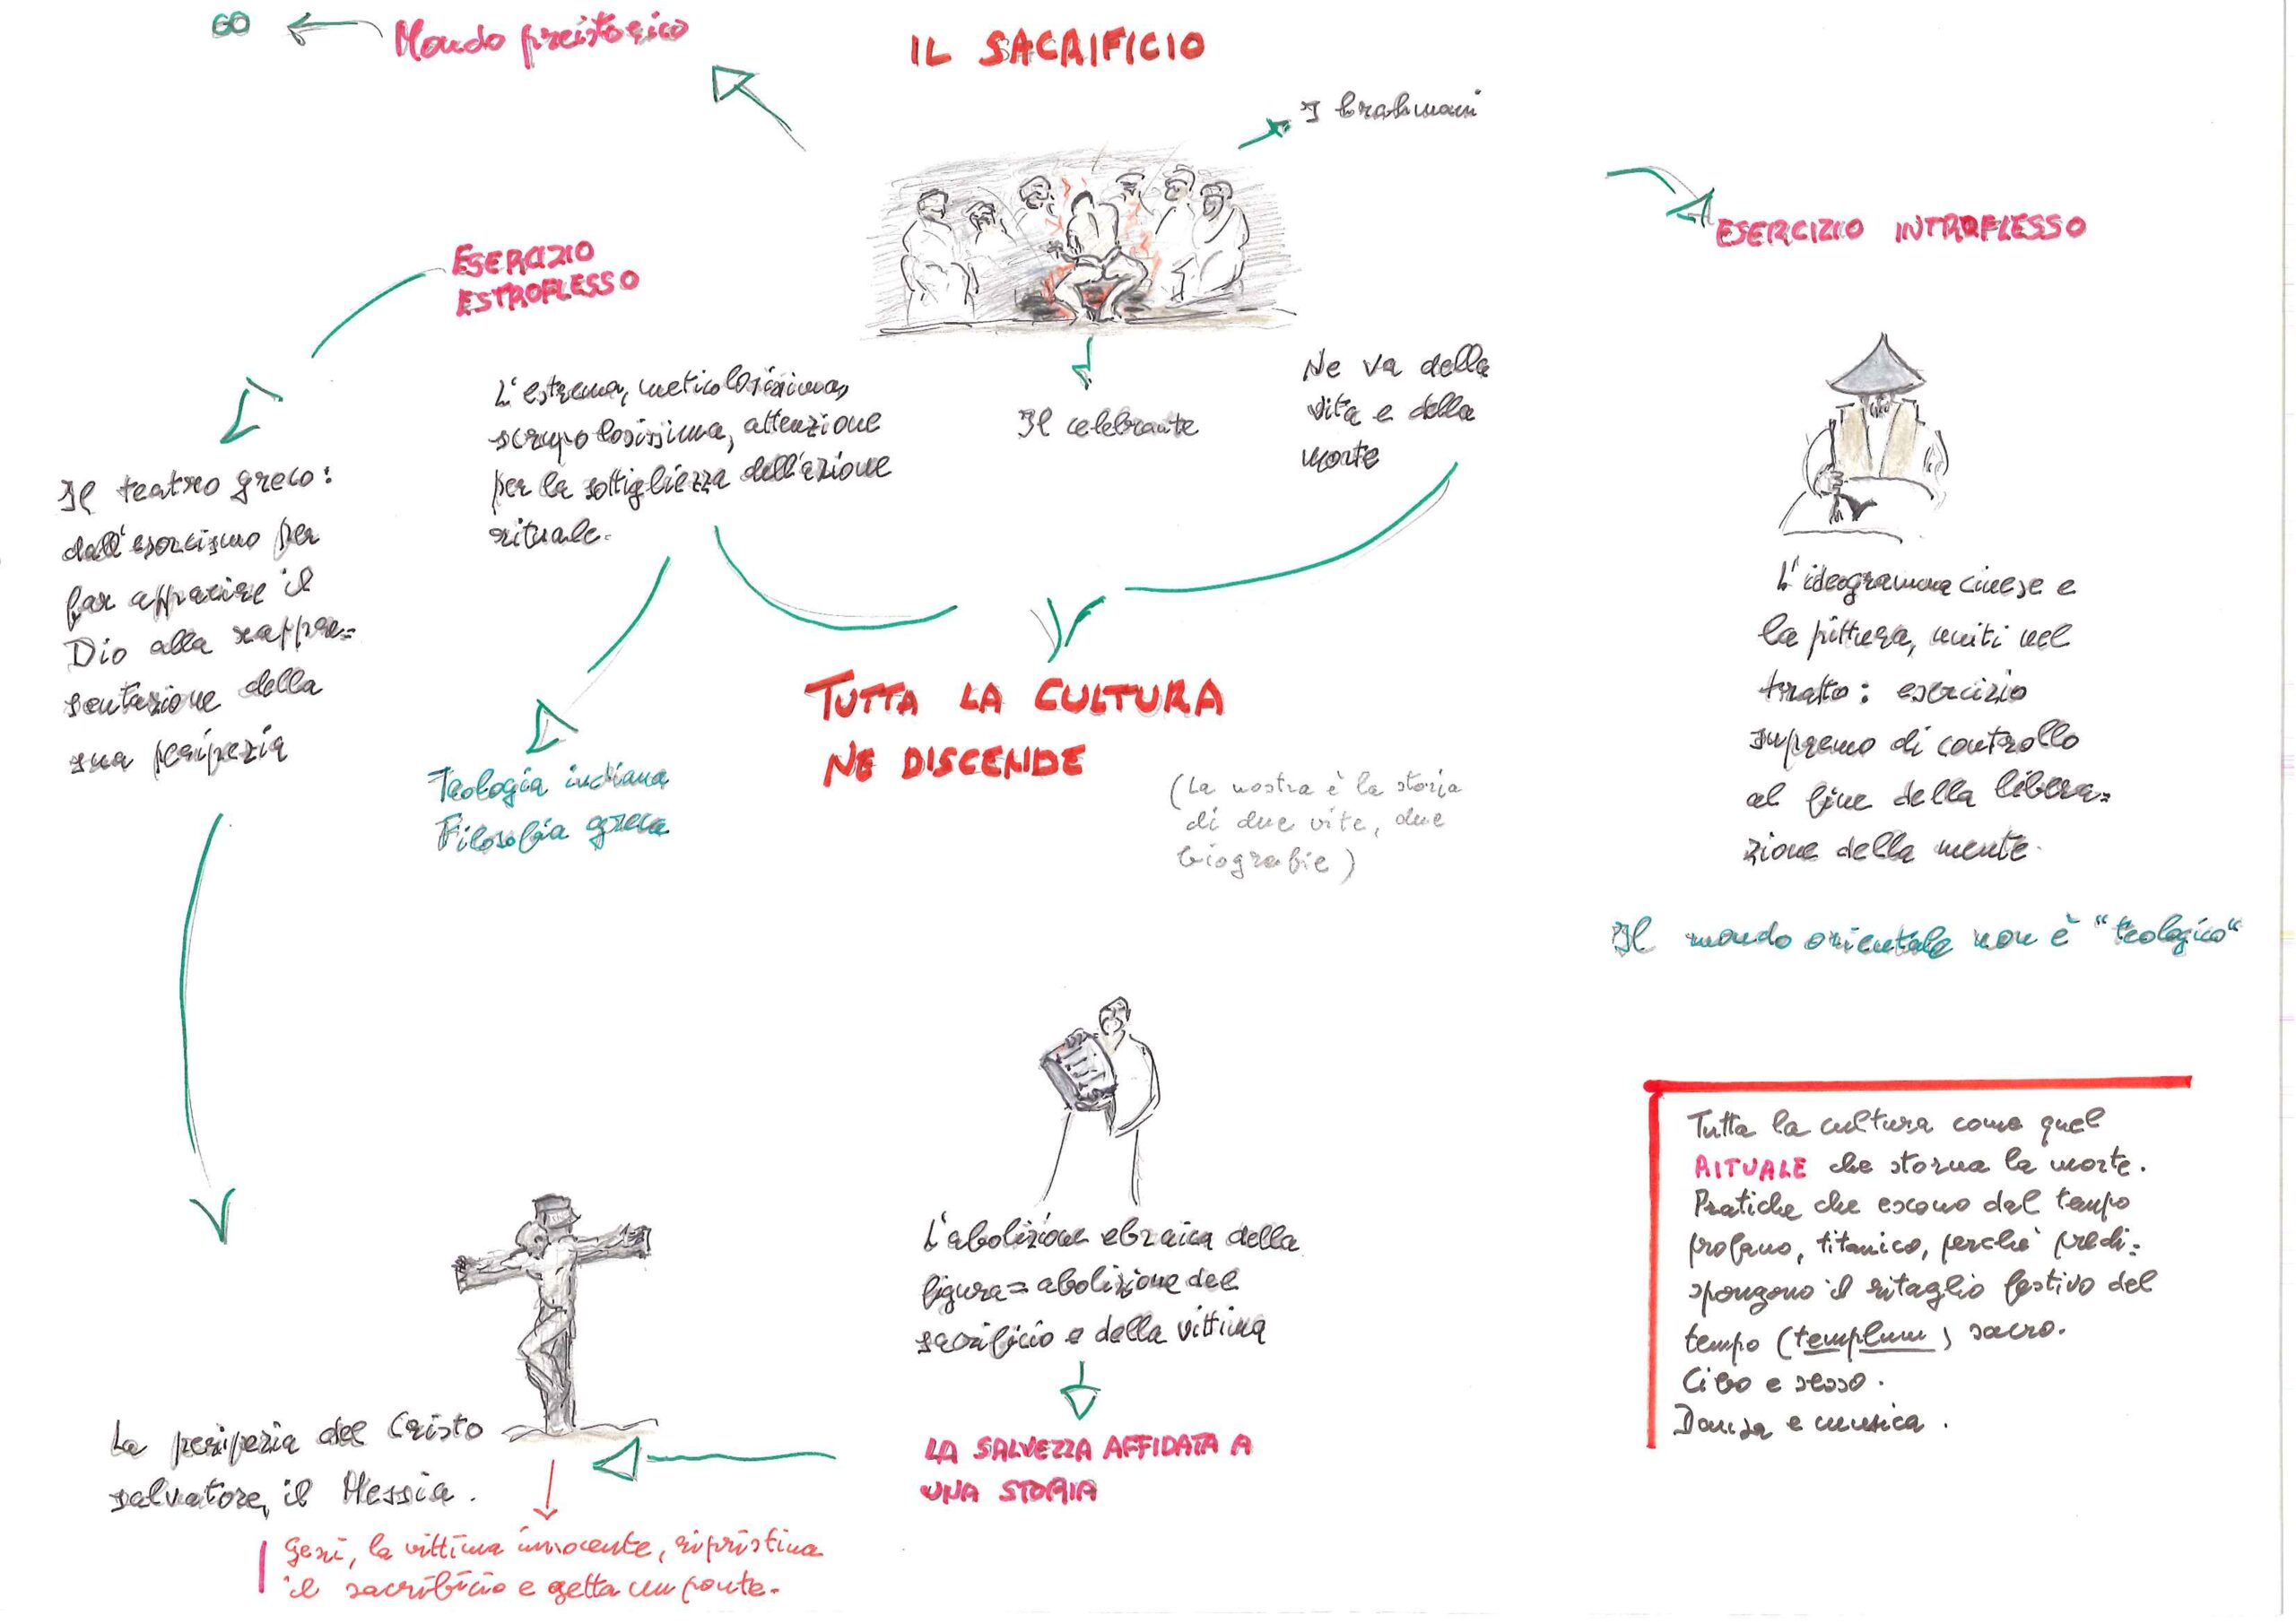 ∞
Mondo preistorico
IL SACRIFICIO
I brahmani
ESERCIZIO
ESTROFLESSO
ESERCIZIO INTROFLESSO
L'estrema, meticolosissima,
scrupolosissima, attenzione
per la sottigliezza dell'azione
rituale.
Il celebrante
Ne va della
vita e della
morte
Il teatro greco:
dall'esorcismo per
far apparire il
Dio alla rappre=
sentazione della
sua peripezia
Teologia indiana
Filosofia greca
TUTTA LA CULTURA
NE DISCENDE
(La nostra è la storia
di due vite, due
biografie)
L'ideogramma cinese e
la pittura, uniti nel
tratto: esercizio
supremo di controllo
al fine della libera=
zione della mente.
Il mondo orientale non è "teologico"
L'abolizione ebraica della
figura = abolizione del
sacrificio e della vittima
LA SALVEZZA AFFIDATA A
UNA STORIA
La peripezia del Cristo
salvatore, il Messia.
Gesù, la vittima innocente, ripristina
il sacrificio e getta un ponte.
Tutta la cultura come quel
RITUALE che storna la morte.
Pratiche che escono dal tempo
profano, titanico, perché predi=
spongono il ritaglio festivo del
tempo (templum) sacro.
Cibo e sesso.
Danza e musica.